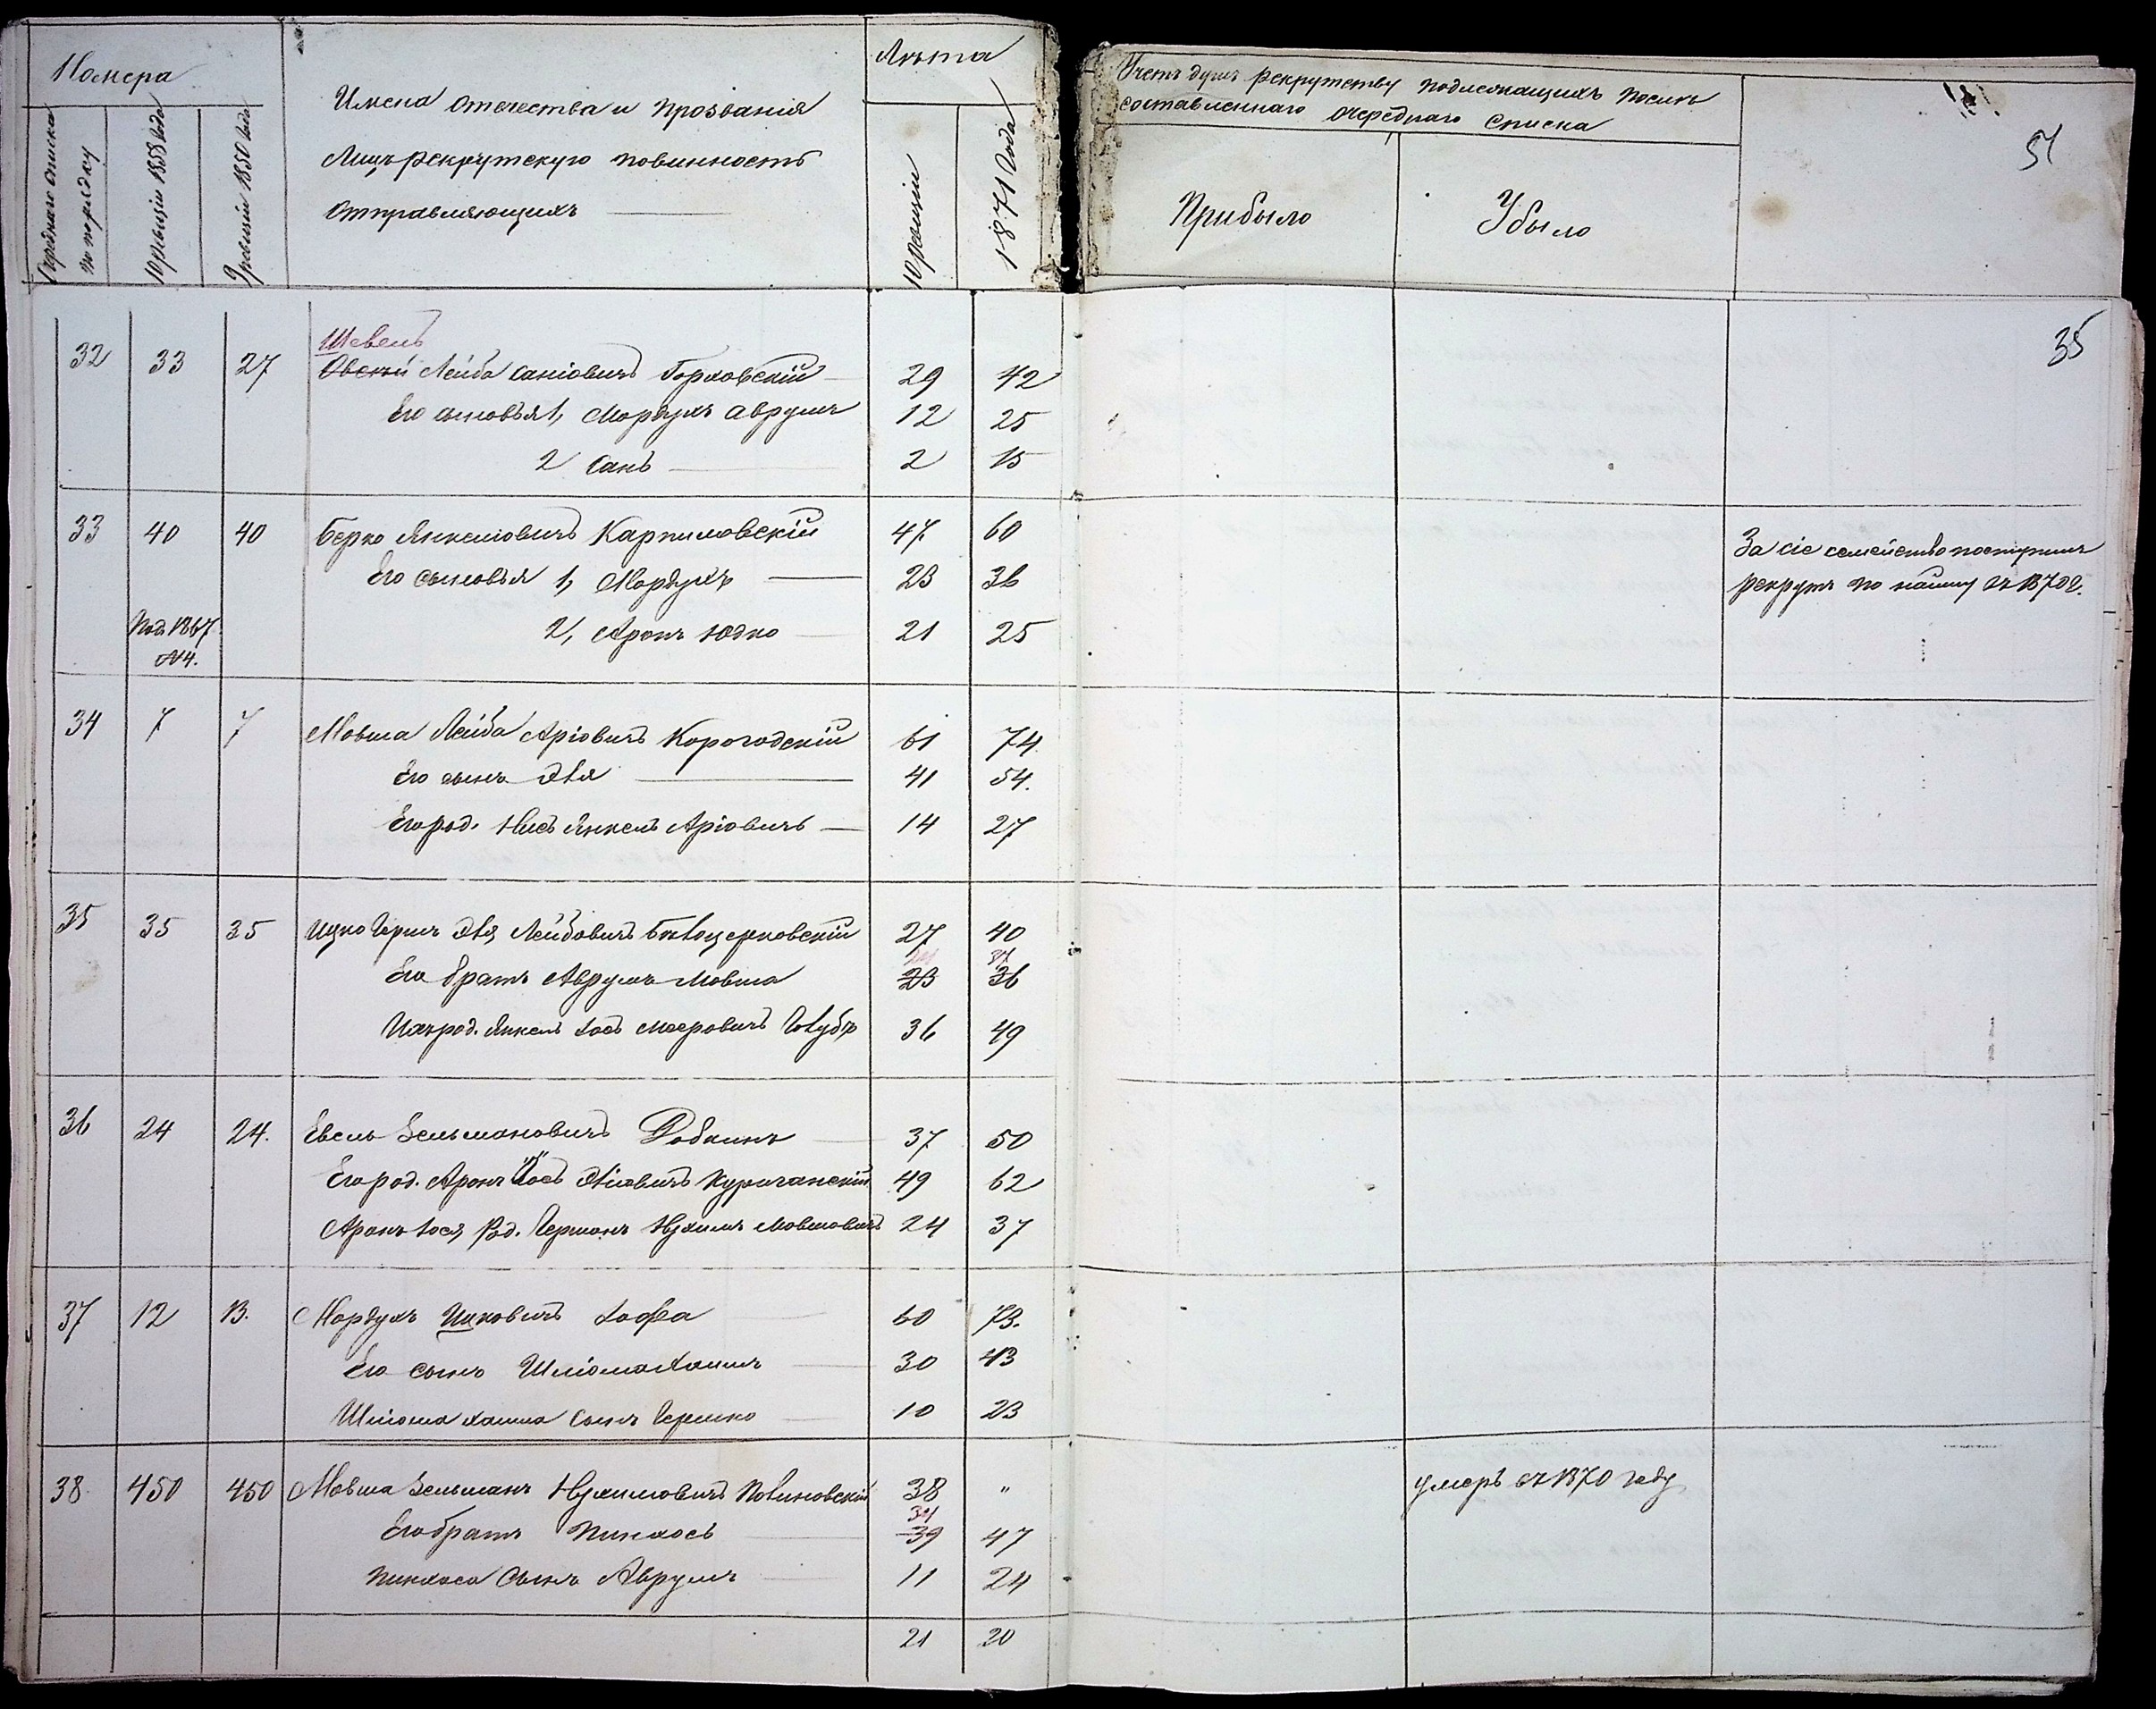 Номера
Очереднаго списка
по порядку
10 ревизіи 1858 года
9 ревизіи 1850 года
Имена отечества и прозванія
Лицъ рекрутскую повинность
отправляющихъ
Лѣта
10 ревизіи
1871 года
Счетъ душъ рекрутству подлежащихъ послѣ
составленнаго очереднаго списка
Прибыло
Убыло
51
35
Шевель
32 33 27 Овсей Лейба Саніовичъ Горловскій 29 42
Его сыновья 1, Мордухъ Аврумъ 12 25
2 Санъ 2 15
33 40 40 Берко Янкеліовичъ Карпиловскій 47 60
За сіе семейство поступилъ
Его сыновья 1, Мордухъ 23 36
рекрутъ по найму въ 1870 г.
Под. 1867
№ 4.
2, Аронъ Юдко 21 25
34 7 7 Мовша Лейба Аріовичъ Корогодскій 61 74.
Его сынъ Эля 41 54.
Его род. Нисъ Янкель Аріовичъ 14 27
35 35 35 Ицко Гершъ Эля Лейбовичъ Бѣлоцерковскій 27 40
24 37
Его братъ Аврумъ Мовша 23 36
Ихъ род. Янкель Іось Мееровичъ Голубъ 36 49
36 24 24. Евель Зельмановичъ Рабкинъ 37 50
Его род. Аронъ Іось Эліовичъ Куричанскій 49 62
Аронъ Іося, Род. Германъ Нухимъ Мовшовичъ 24 37
37 12 13. Мордухъ Ицковичъ Іоффа 60 73.
Его сынъ Шліома Хаимъ 30 43
Шліома Хаима сынъ Гершко 10 23
38. 450 450 Мовша Зельманъ Нухимовичъ Полиновскій 38 "
умеръ въ 1870 году
34
Его братъ Пинхосъ 39 47
Пинхоса сынъ Аврумъ 11 24
21 20